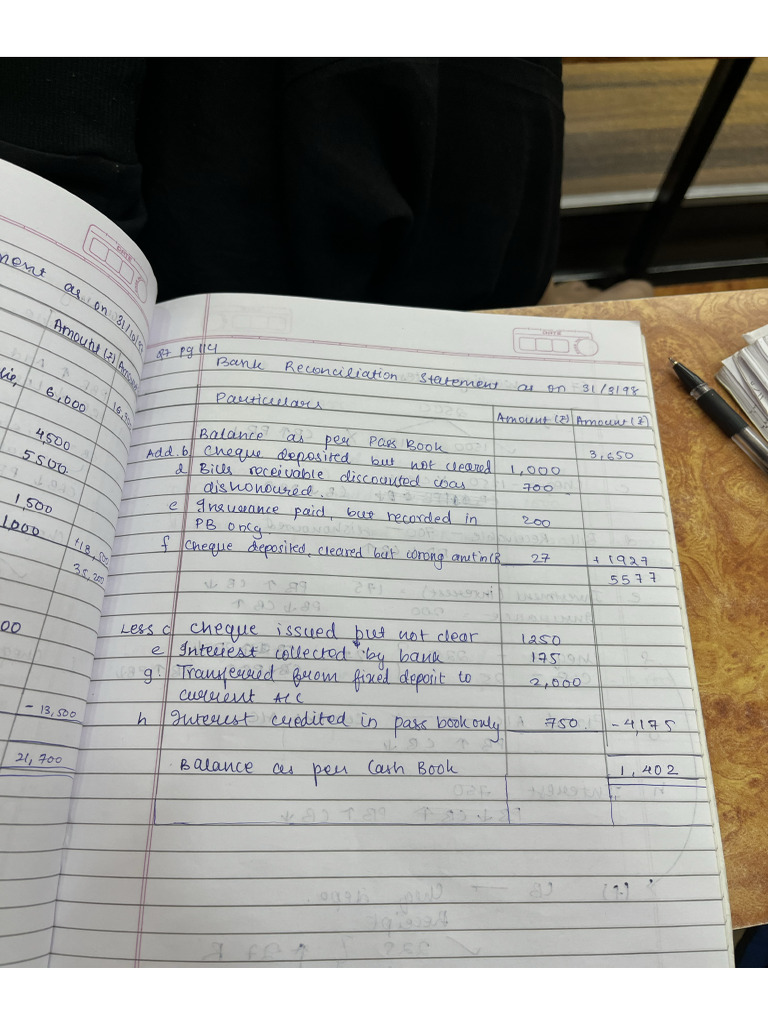 ment as on 31/10/9
Amount (₹) Amount
6,000
4,500
5500
1,500
1,000
+18,500
35,200
00
- 13,500
21,700
DATE
DATE
Q7 Pg 114
Bank Reconciliation Statement as on 31/3/98
Particulars Amount (₹) Amount (₹)
Balance as per Pass Book 3,650
Add. b Cheque deposited but not cleared 1,000
d Bills receivable discounted was 700
dishonoured.
e Insurance paid, but recorded in 200
PB only.
f Cheque deposited, cleared but wrong amt in CB 27 + 1927
5577
Less c Cheque issued but not clear 1250
e Interest collected by bank 175
g. Transferred from fixed deposit to 2,000
current A/C
h Interest credited in pass book only 750 - 4,175
Balance as per Cash Book 1,402